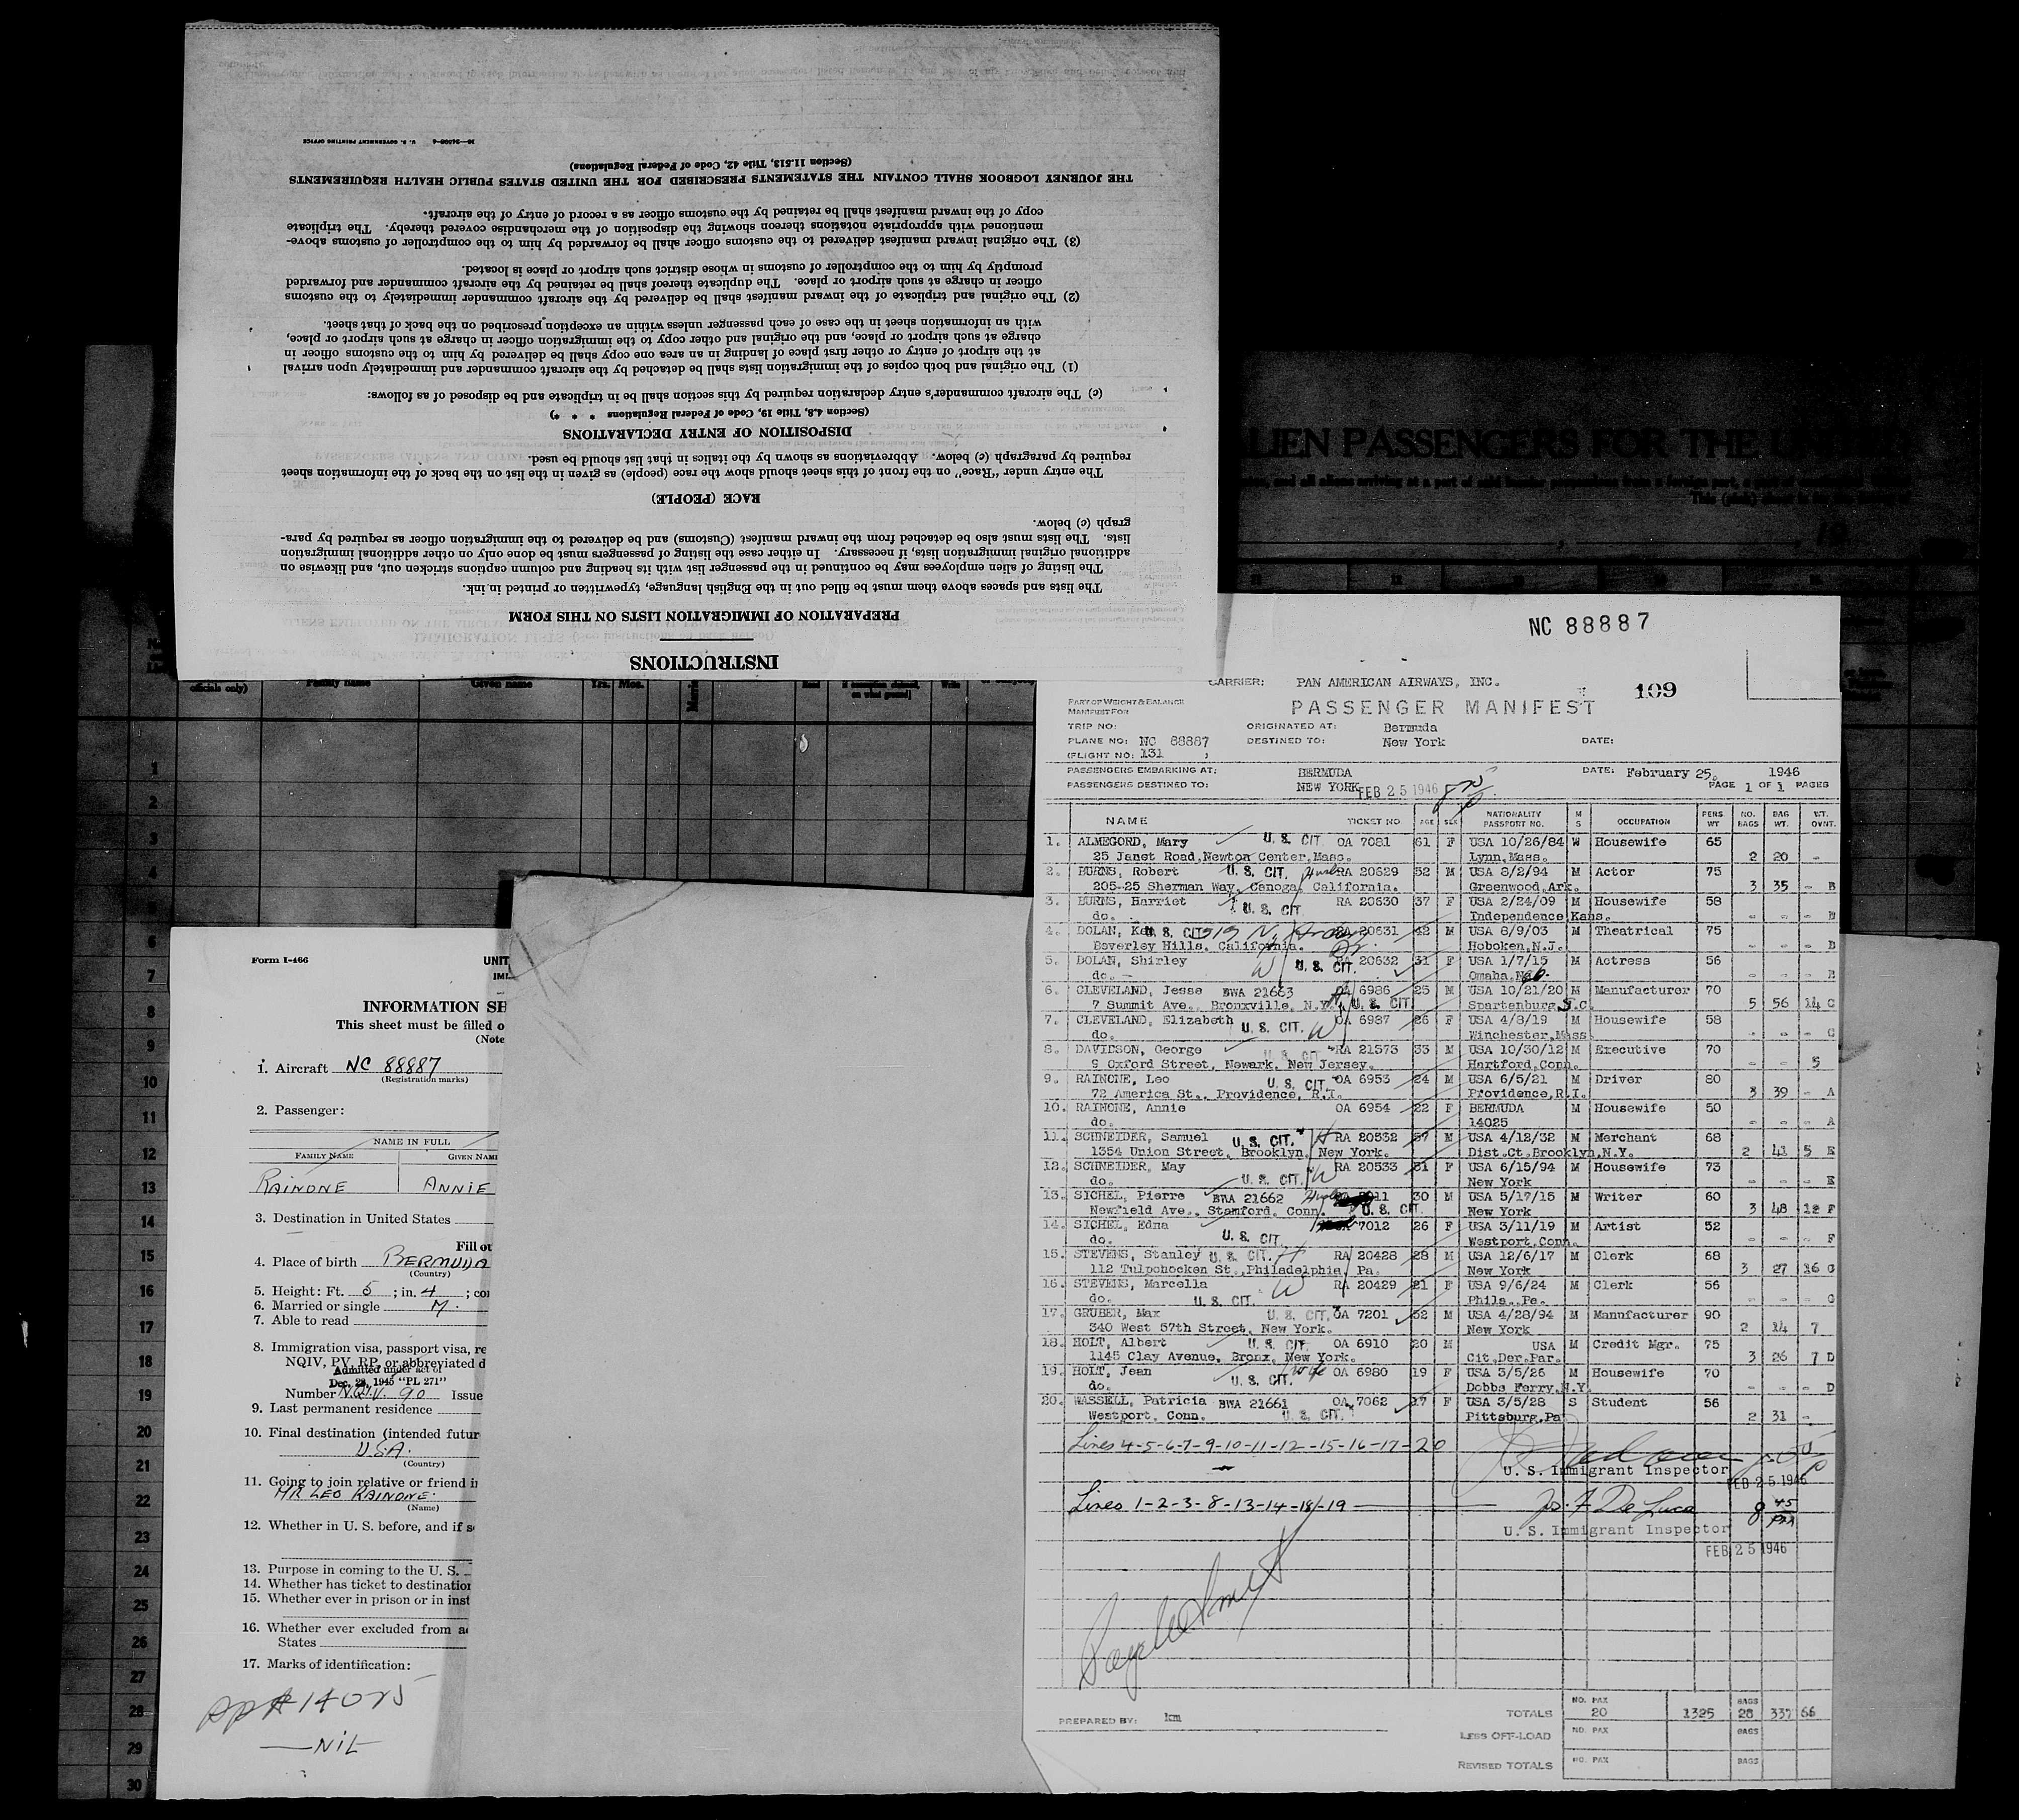 INSTRUCTIONS
PREPARATION OF IMMIGRATION LISTS ON THIS FORM
The lists and spaces above them must be filled out in the English language, typewritten or printed in ink.
The listing of alien employees may be continued in the passenger list with its heading and column captions stricken out, and likewise on
additional original immigration lists, if necessary. In either case the listing of passengers must be done only on other additional immigration
lists. The lists must also be detached from the inward manifest (Customs) and be delivered to the immigration officer as required by para-
graph (c) below.
RACE (PEOPLE)
The entry under "Race" on the front of this sheet should show the race (people) as given in the list on the back of the information sheet
required by paragraph (c) below. Abbreviations as shown by the italics in that list should be used.
DISPOSITION OF ENTRY DECLARATIONS
(Section 4.8, Title 19, Code of Federal Regulations * * *)
(c) The aircraft commander's entry declaration required by this section shall be in triplicate and be disposed of as follows:
(1) The original and both copies of the immigration lists shall be detached by the aircraft commander and immediately upon arrival
at the airport of entry or other first place of landing in an area one copy shall be delivered by him to the customs officer in
charge at such airport or place, and the original and other copy to the immigration officer in charge at such airport or place,
with an information sheet in the case of each passenger unless within an exception prescribed on the back of that sheet.
(2) The original and triplicate of the inward manifest shall be delivered by the aircraft commander immediately to the customs
officer in charge at such airport or place. The duplicate thereof shall be retained by the aircraft commander and forwarded
promptly by him to the comptroller of customs in whose district such airport or place is located.
(3) The original inward manifest delivered to the customs officer shall be forwarded by him to the comptroller of customs above-
mentioned with appropriate notations thereon showing the disposition of the merchandise covered thereby. The triplicate
copy of the inward manifest shall be retained by the customs officer as a record of entry of the aircraft.
THE JOURNEY LOGBOOK SHALL CONTAIN THE STATEMENTS PRESCRIBED FOR THE UNITED STATES PUBLIC HEALTH REQUIREMENTS
(Section 11.513, Title 42, Code of Federal Regulations)
16—24508-4 U. S. GOVERNMENT PRINTING OFFICE
LIEN PASSENGERS FOR THE
officials only) Family name Given name Yrs. Mos.
1
2
3
4
6
7
8
9
10
11
12
13
14
15
16
17
18
19
20
21
22
23
24
25
26
27
28
29
30
Form I-466 UNIT
INFORMATION SE
This sheet must be filled o
(Note
1. Aircraft NC 88887
(Registration marks)
2. Passenger:
NAME IN FULL
FAMILY NAME GIVEN NAM
RAINONE ANNIE
3. Destination in United States
Fill ou
4. Place of birth BERMUDA
(Country)
5. Height: Ft. 5 ; in. 4 ; co
6. Married or single M.
7. Able to read
8. Immigration visa, passport visa, re
NQIV, PV, RP, or abbreviated d
Admitted under act of
Dec. 28, 1945 "PL 271"
Number N.Q.I.V. 90 Issue
9. Last permanent residence
10. Final destination (intended futur
U.S.A.
(Country)
11. Going to join relative or friend i
MR LEO RAINONE.
(Name)
12. Whether in U. S. before, and if s
13. Purpose in coming to the U. S.
14. Whether has ticket to destination
15. Whether ever in prison or in inst
16. Whether ever excluded from a
States
17. Marks of identification:
14025
NIL
NC 88887
CARRIER: PAN AMERICAN AIRWAYS, INC. 109
PART OF WEIGHT & BALANCE
MANIFEST FOR
PASSENGER MANIFEST
TRIP NO: ORIGINATED AT: Bermuda
PLANE NO: NC 88887 DESTINED TO: New York DATE:
(FLIGHT NO: 131 )
PASSENGERS EMBARKING AT: BERMUDA DATE: February 25, 1946
PASSENGERS DESTINED TO: NEW YORK FEB 25 1946 PAGE 1 OF 1 PAGES
NAME TICKET NO AGE SEX NATIONALITY PASSPORT NO. M S OCCUPATION PERS WT NO. BAGS BAG WT. WT. OVNT.
1. ALMEGORD, Mary U. S. CIT. OA 7081 61 F USA 10/26/84 W Housewife 65
25 Janet Road, Newton Center, Mass. Lynn, Mass. 2 20 -
2. BURNS, Robert U. S. CIT. RA 20629 52 M USA 8/2/94 M Actor 75
205-25 Sherman Way, Canoga, California. Greenwood, Ark. 3 35 - B
3. BURNS, Harriet U. S. CIT. RA 20630 37 F USA 2/24/09 M Housewife 58
do. Independence Kans. - - - B
4. DOLAN, Ken U. S. CIT. RA 20631 42 M USA 8/9/03 M Theatrical 75
Beverley Hills, California. Hoboken, N.J. - - - B
5. DOLAN, Shirley W U. S. CIT. RA 20632 31 F USA 1/7/15 M Actress 56
do. Omaha, Neb. - - - B
6. CLEVELAND, Jesse BWA 21663 OA 6986 25 M USA 10/21/20 M Manufacturer 70
7 Summit Ave., Bronxville, N.Y. H U. S. CIT. Spartenburg, S.C. 5 56 14 C
7. CLEVELAND, Elizabeth U. S. CIT. W OA 6987 26 F USA 4/8/19 M Housewife 58
do. Winchester, Mass. - - - C
8. DAVIDSON, George U. S. CIT. RA 21573 33 M USA 10/30/12 M Executive 70
9 Oxford Street, Newark, New Jersey. Hartford, Conn. - - 5
9. RAINONE, Leo U. S. CIT. OA 6953 24 M USA 6/5/21 M Driver 80
72 America St., Providence, R.I. Providence, R.I. 3 39 - A
10. RAINONE, Annie OA 6954 22 F BERMUDA M Housewife 50
do. 14025 - - - A
11. SCHNEIDER, Samuel U. S. CIT. H RA 20532 57 M USA 4/12/32 M Merchant 68
1354 Union Street, Brooklyn, New York. Dist.Ct.Brooklyn, N.Y. 2 41 5 E
12. SCHNEIDER, May U. S. CIT. W RA 20533 51 F USA 6/15/94 M Housewife 73
do. New York - - - E
13. SICHEL, Pierre BWA 21662 7011 30 M USA 5/17/15 M Writer 60
Newfield Ave., Stamford, Conn. U. S. CIT. New York 3 48 12 F
14. SICHEL, Edna U. S. CIT. 7012 26 F USA 3/11/19 M Artist 52
do. Westport, Conn. - - - F
15. STEVENS, Stanley U. S. CIT. H RA 20428 28 M USA 12/6/17 M Clerk 68
112 Tulpehocken St., Philadelphia, Pa. New York 3 27 16 G
16. STEVENS, Marcella W RA 20429 21 F USA 9/6/24 M Clerk 56
do. U. S. CIT. Phila. Pa. - - - G
17. GRUBER, Max U. S. CIT. OA 7201 52 M USA 4/28/94 M Manufacturer 90
340 West 57th Street, New York. New York 2 14 7
18. HOLT, Albert U. S. CIT. OA 6910 20 M USA M Credit Mgr. 75
1145 Clay Avenue, Bronx, New York. Cit.Der.Par. 3 26 7 D
19. HOLT, Jean U. S. CIT. Wife OA 6980 19 F USA 3/5/26 M Housewife 70
do. Dobbs Ferry, N.Y. - - - D
20. WASSELL, Patricia BWA 21661 OA 7062 17 F USA 3/5/28 S Student 56
Westport, Conn. U. S. CIT. Pittsburg, Pa 2 31 -
Lines 4-5-6-7-9-10-11-12-15-16-17-20
U. S. Immigrant Inspector FEB 25 1946
Lines 1-2-3-8-13-14-18-19 De Luca 8 45 PM
U. S. Immigrant Inspector
FEB 25 1946
PREPARED BY: km
TOTALS NO. PAX 20 1325 BAGS 28 337 66
LESS OFF-LOAD NO. PAX BAGS
REVISED TOTALS NO. PAX BAGS